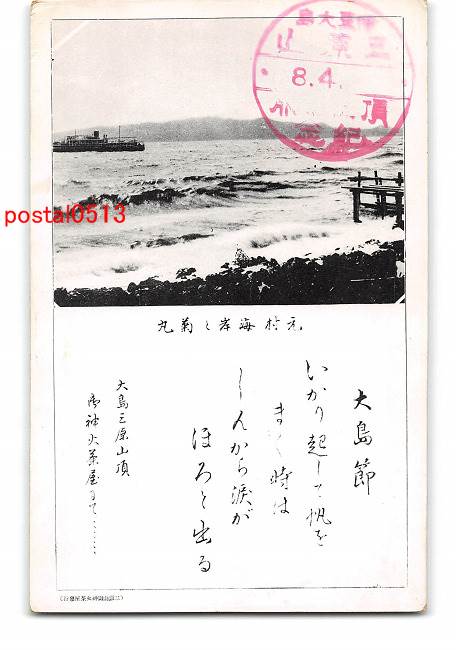 伊豆大島
三原山
8.4.
頂
紀念
postal0513
元村海岸と菊丸
大島節
いかり起して帆を
まく時は
しんから涙が
ほろと出る
大島三原山頂
御神火茶屋にて………